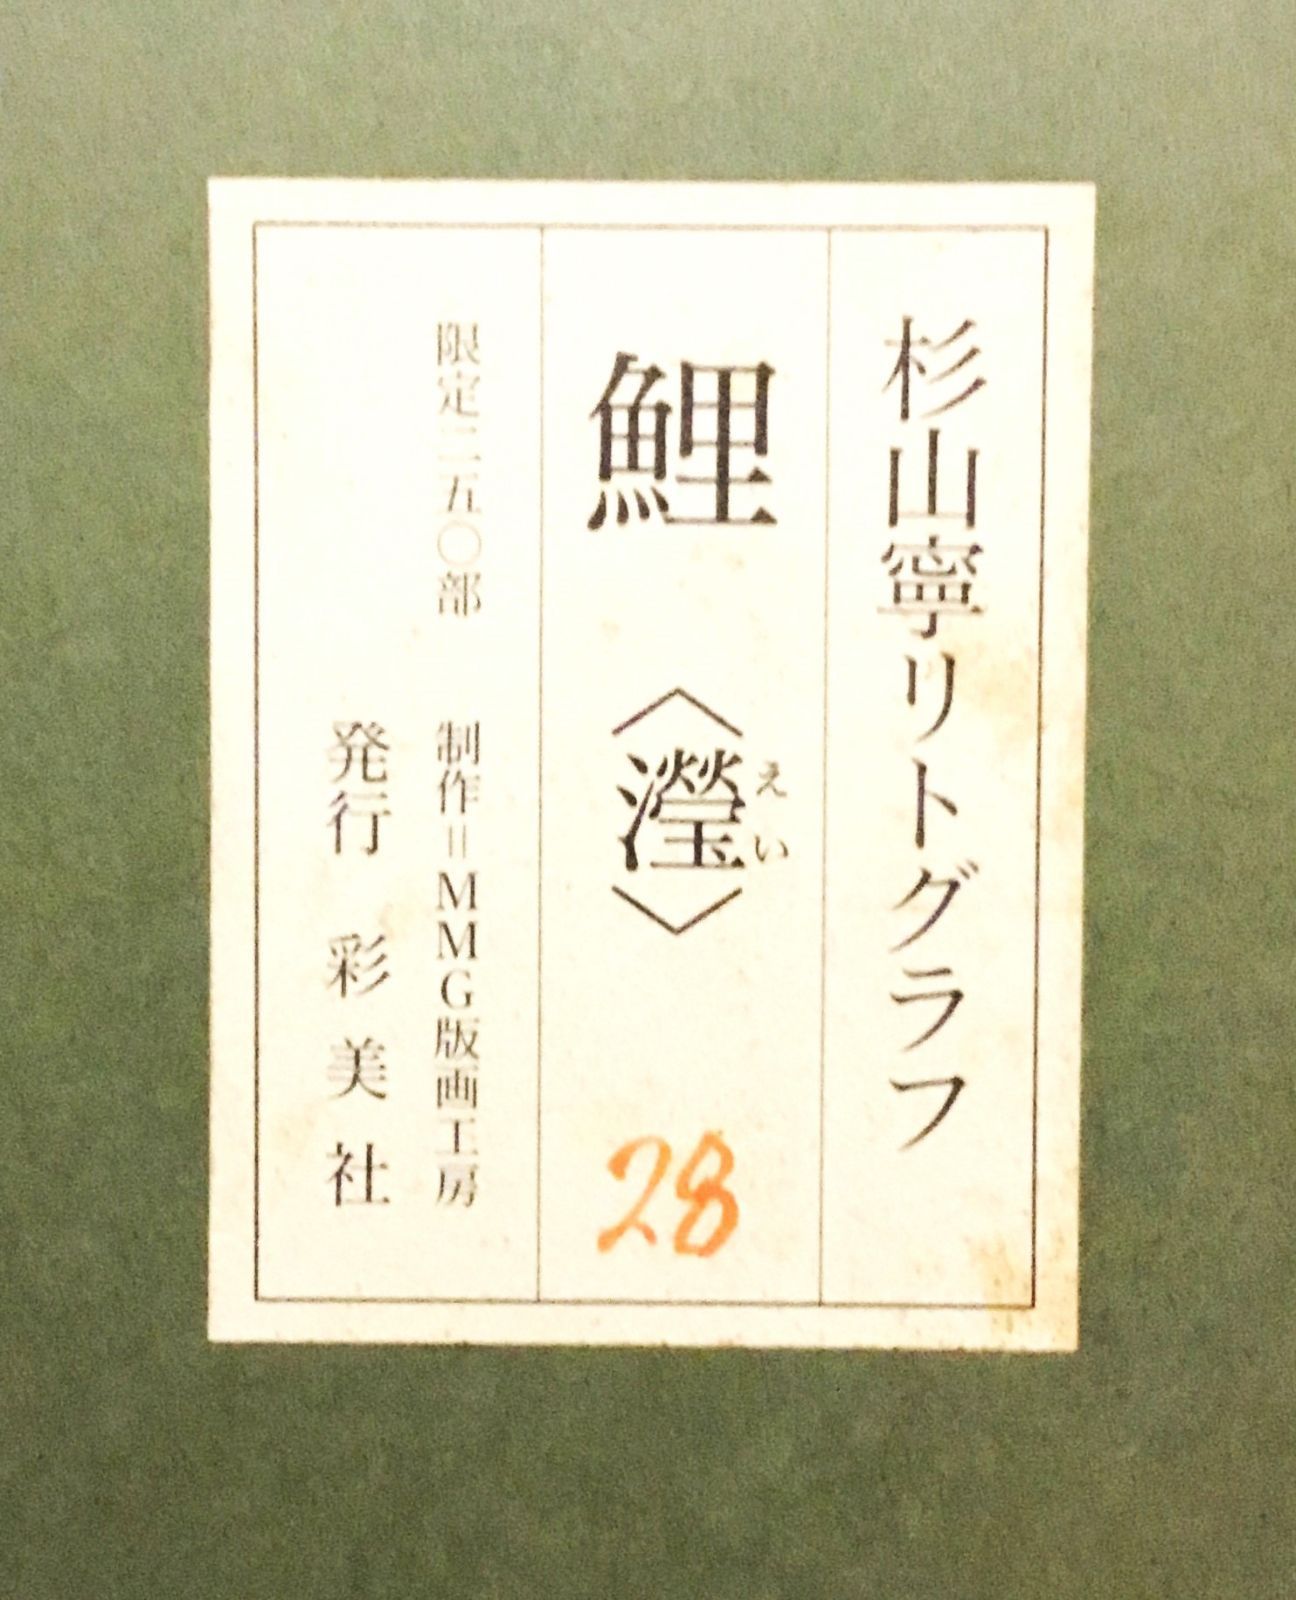 杉山寧リトグラフ
鯉〈瀅〉
えい
28
限定二五〇部 制作=MMG版画工房
発行 彩美社